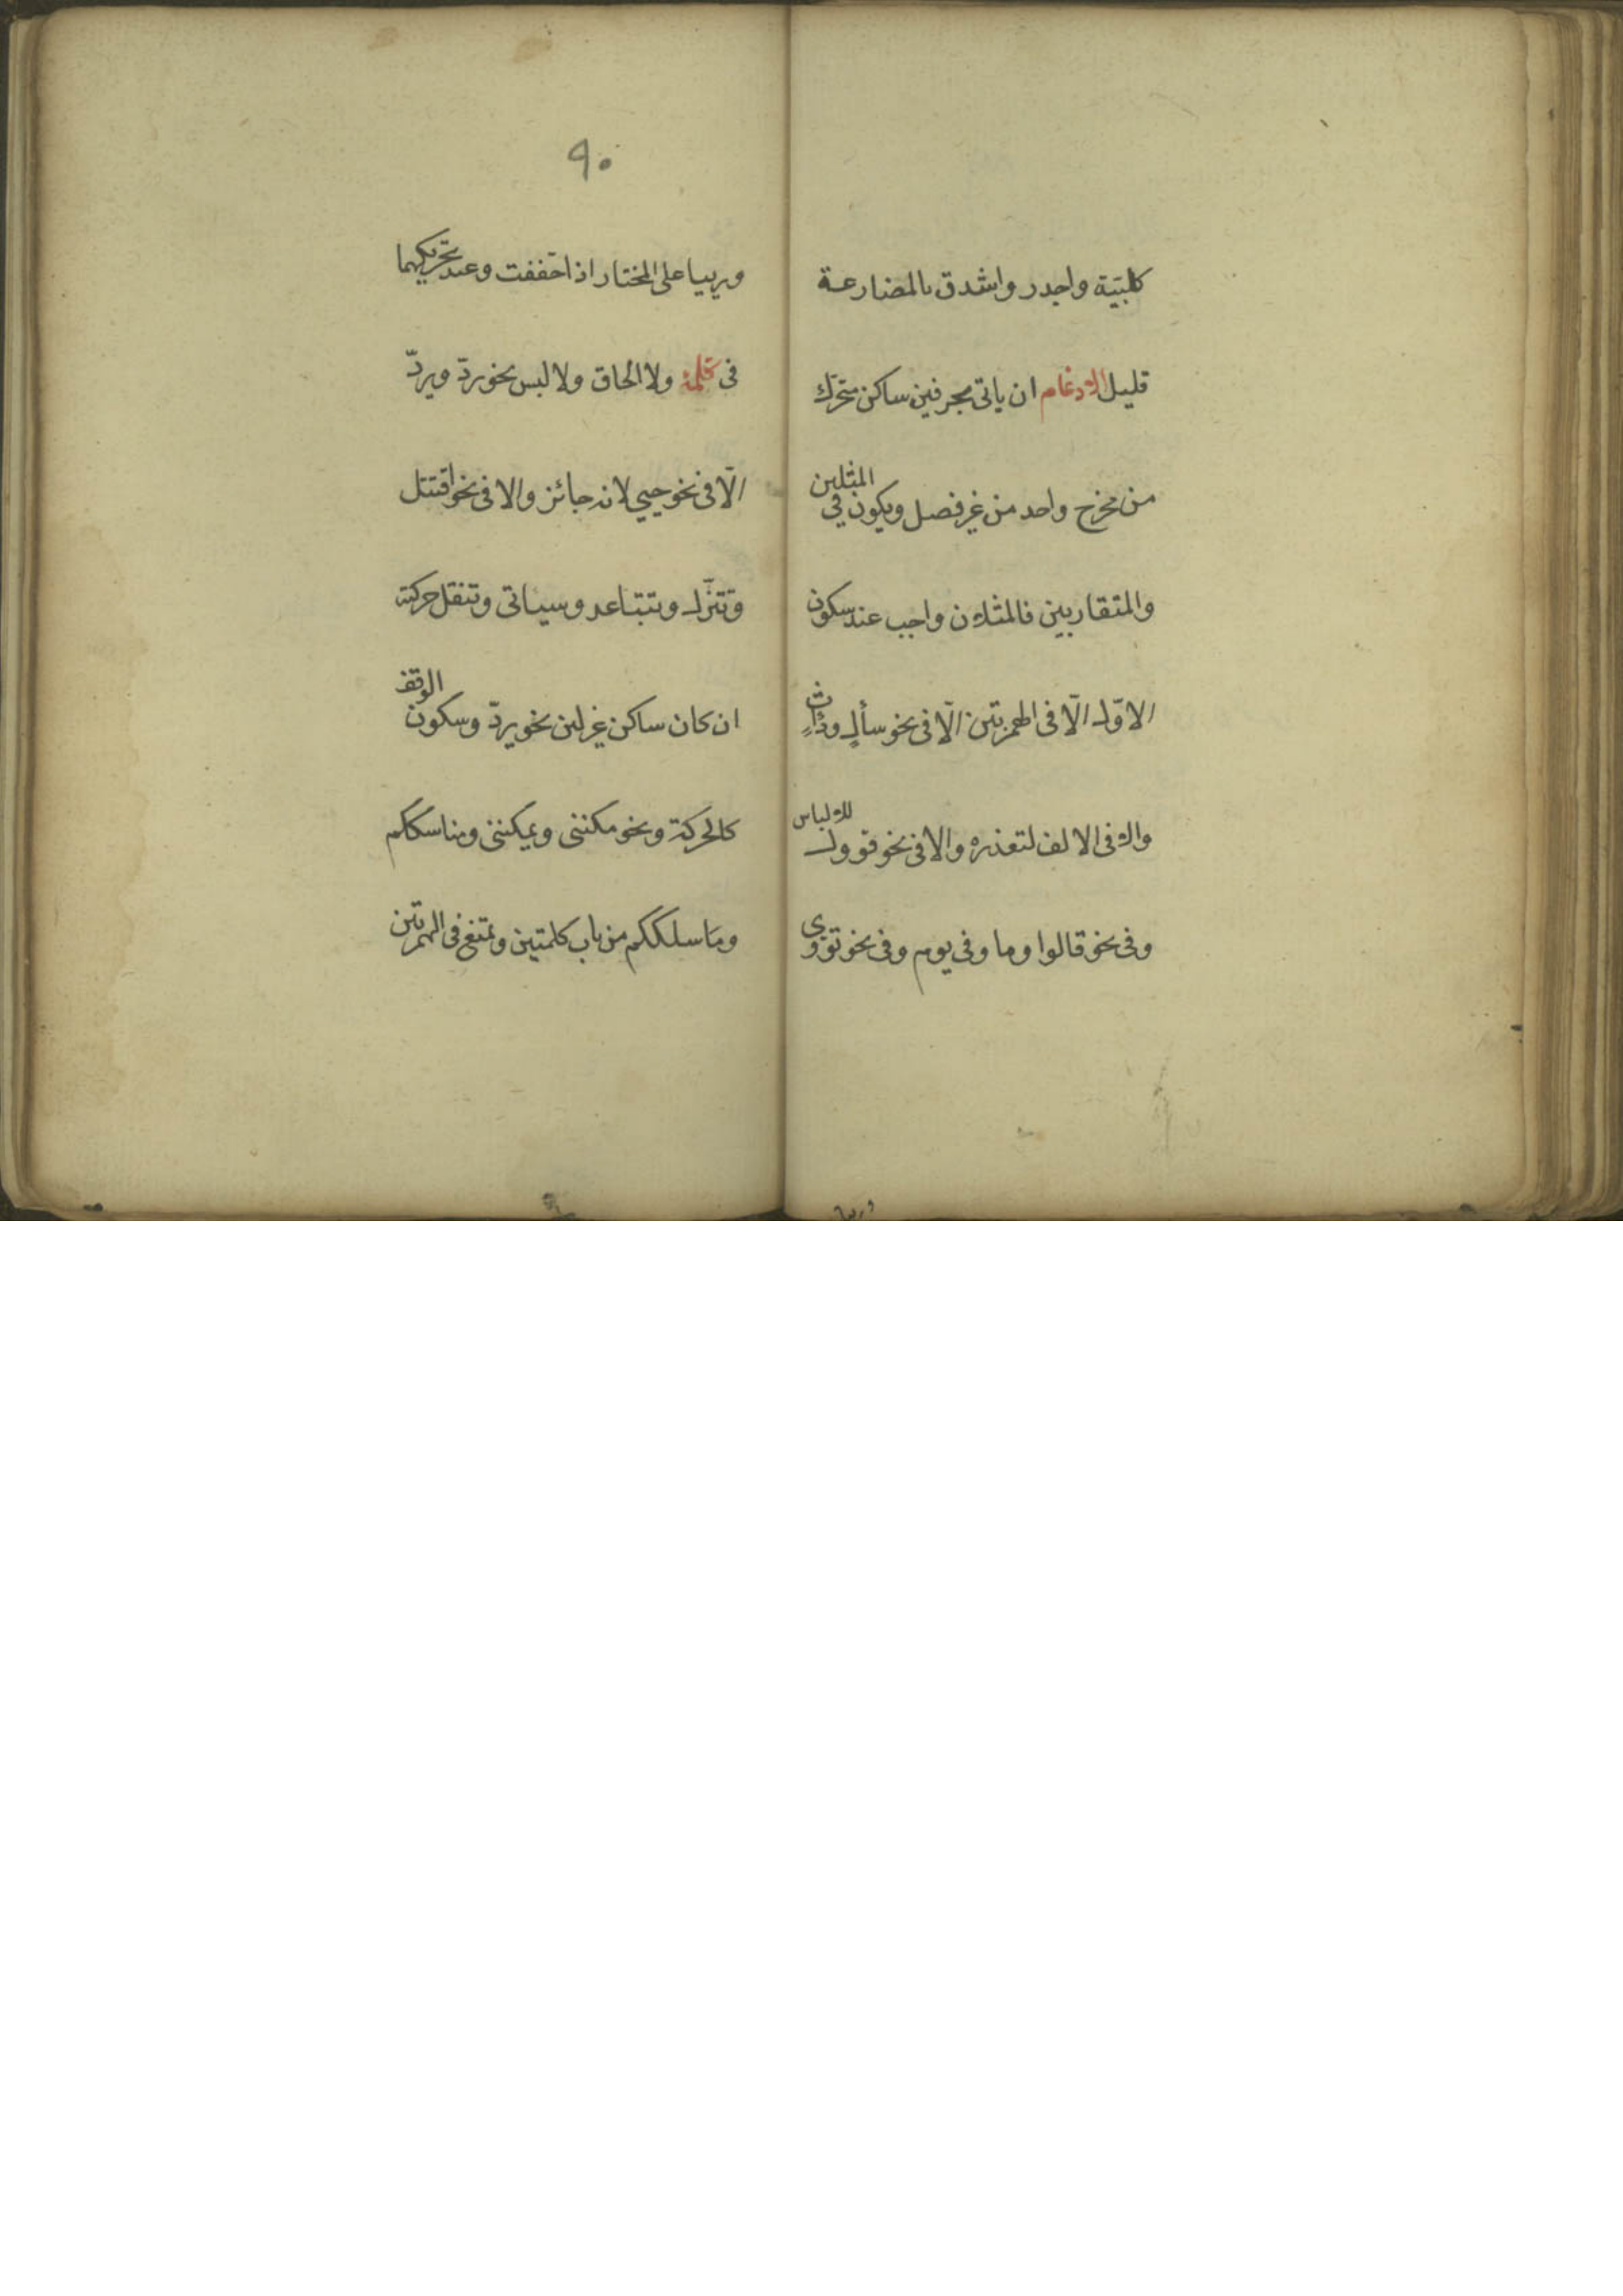 كلبتية واجدر واشدق بالمضارعة
قليل الادغام ان ياتى بحرفين ساكن متحرك
من مخرج واحد من غير فصل ويكون في المثلين
والمتقاربين فالمثلان واجب عند سكون
الاوّل الّا فى الهمزتين الّا فى نحو سأل ودأاث
والا فى الالف لتعذره والا فى نحو قوول للالباس
وفى نحو قالوا وما وفى يوم وفى نحو تؤوى
٩٠
وريبا على المختار اذا خففت وعند تحريكهما
فى كلمة ولا الحاق ولا لبس نحو ردّ ويردّ
الّا فى نحو حيي لانه جائز والا فى نحو اقتتل
وتتنزّل وتتباعد وسياتى وتنقل حركته
ان كان ساكن غير لين نحو يردّ وسكون الوقف
كالحركة ونحو مكننى ويمكننى ومناسككم
وما سلككم من باب كلمتين وتمتنع فى الهمزتين